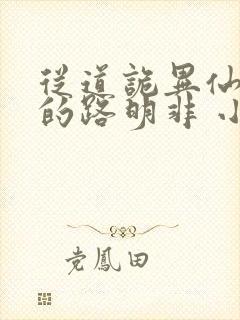 從道詭異仙
的路明非 小
党鳳田